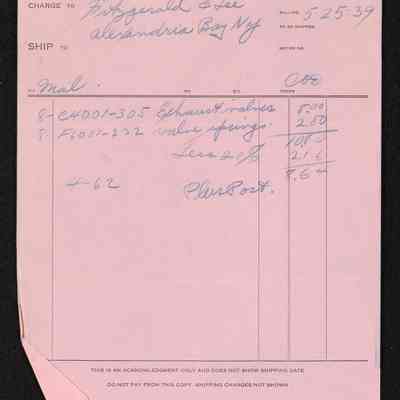 CHARGE TO Fitzgerald & Lee 5-25-39
Alexandria Bay NY
SHIP TO
Mail. COD
8- C4001-305 Exhaust valves 8.00
8- F6011-222 valve springs. 2.80
10.80
Less 20% 2.16
8.64
4-62 Plus Post.
THIS IS AN ACKNOWLEDGMENT ONLY AND DOES NOT SHOW SHIPPING DATE
DO NOT PAY FROM THIS COPY. SHIPPING CHARGES NOT SHOWN